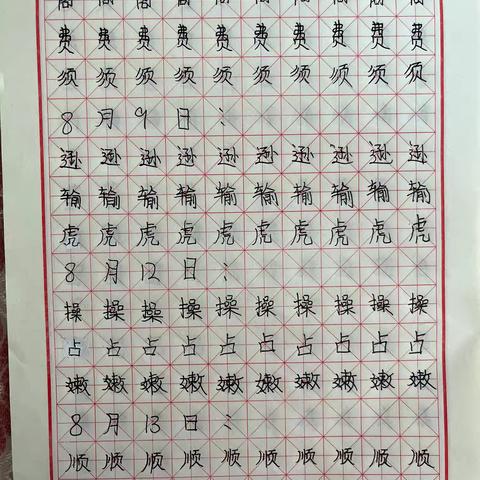 费费费费费费费费费费
须须须须须须须须须须
8月9日:
逊逊逊逊逊逊逊逊逊逊
输输输输输输输输输输
虎虎虎虎虎虎虎虎虎虎
8月12日:
操操操操操操操操操操
占占占占占占占占占占
嫩嫩嫩嫩嫩嫩嫩嫩嫩嫩
8月13日:
顺顺顺顺顺顺顺顺顺顺